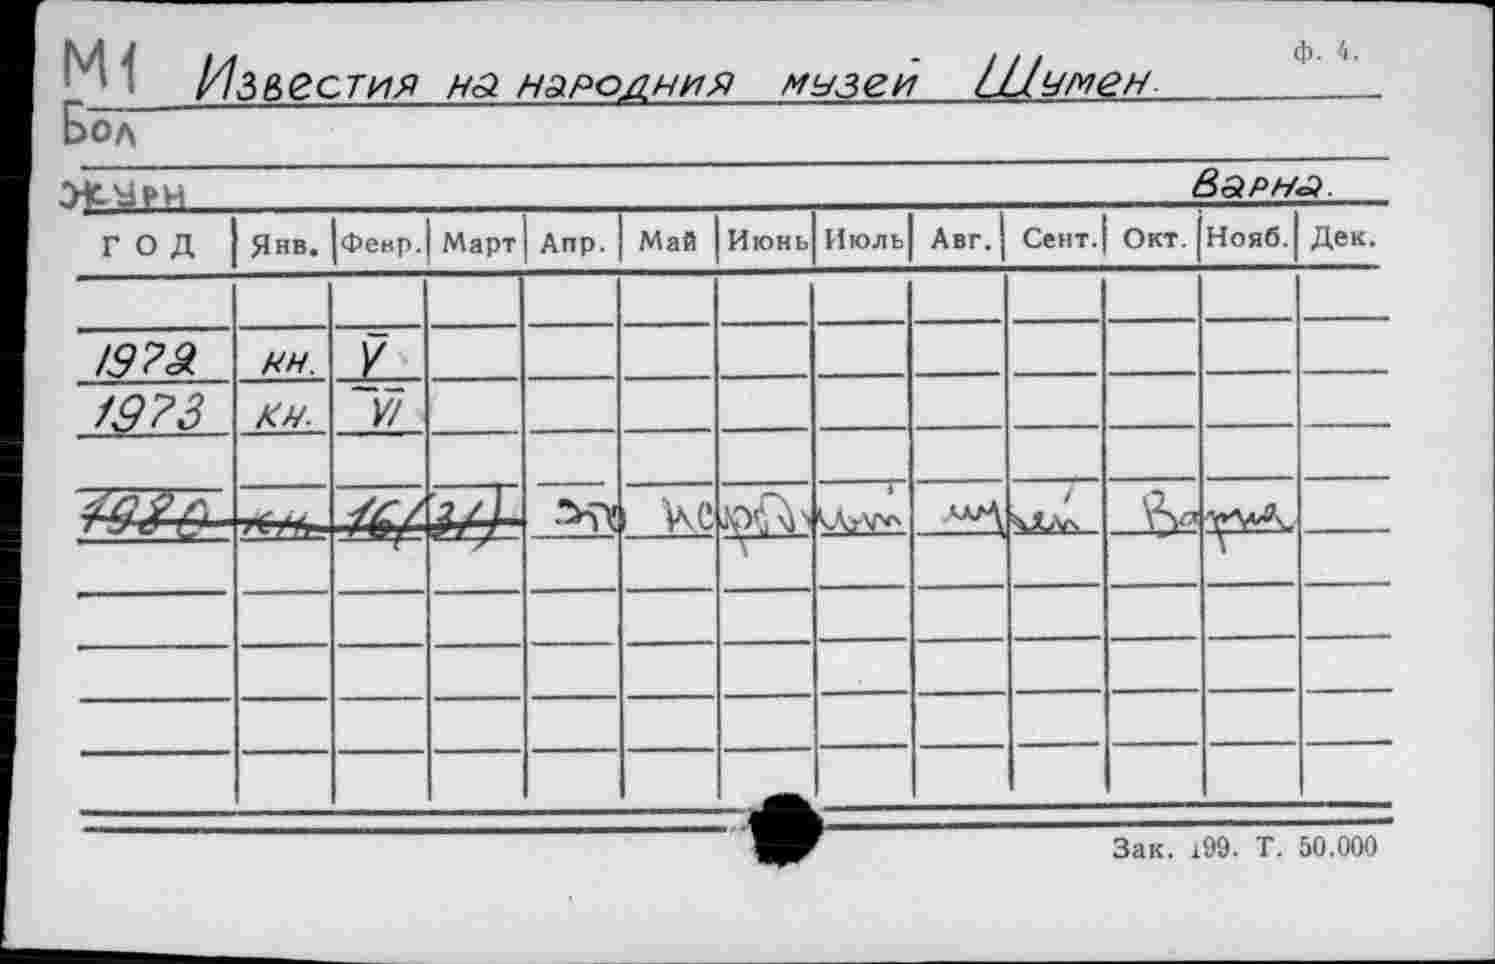 ф. 4.
М1 Известия на народния музей Шумен.
Бол
Журн Варна.
ГОД Янв. Февр. Март Апр. Май Июнь Июль Авг. Сент. Окт. Нояб. Дек.
1972 кн. V
1973 кн. VI
1980 кн. 16/31) Это Варна
Зак. 199. Т. 50.000